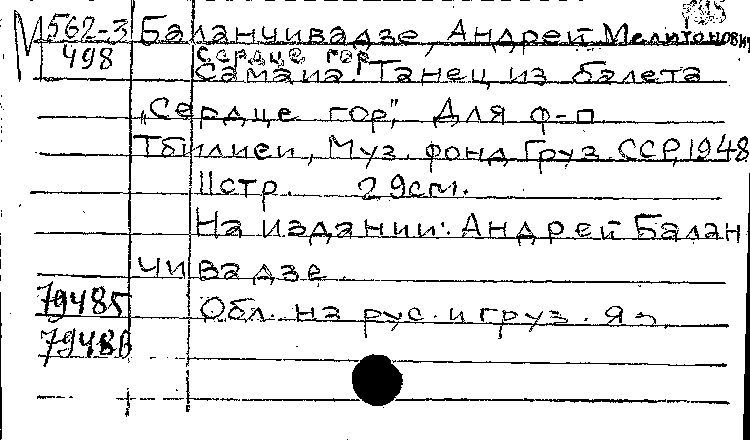 М 562-3 Баланчивадзе, Андрей Мелитонович
498 Сердце гор
Самаиа. Танец из балета
„Сердце гор", Для ф-п
Тбилиси, Муз. фонд Груз. ССР, 1948
11стр. 29см.
На издании: Андрей Балан
чивадзе.
79485 Обл. на рус. и груз. яз.
79486